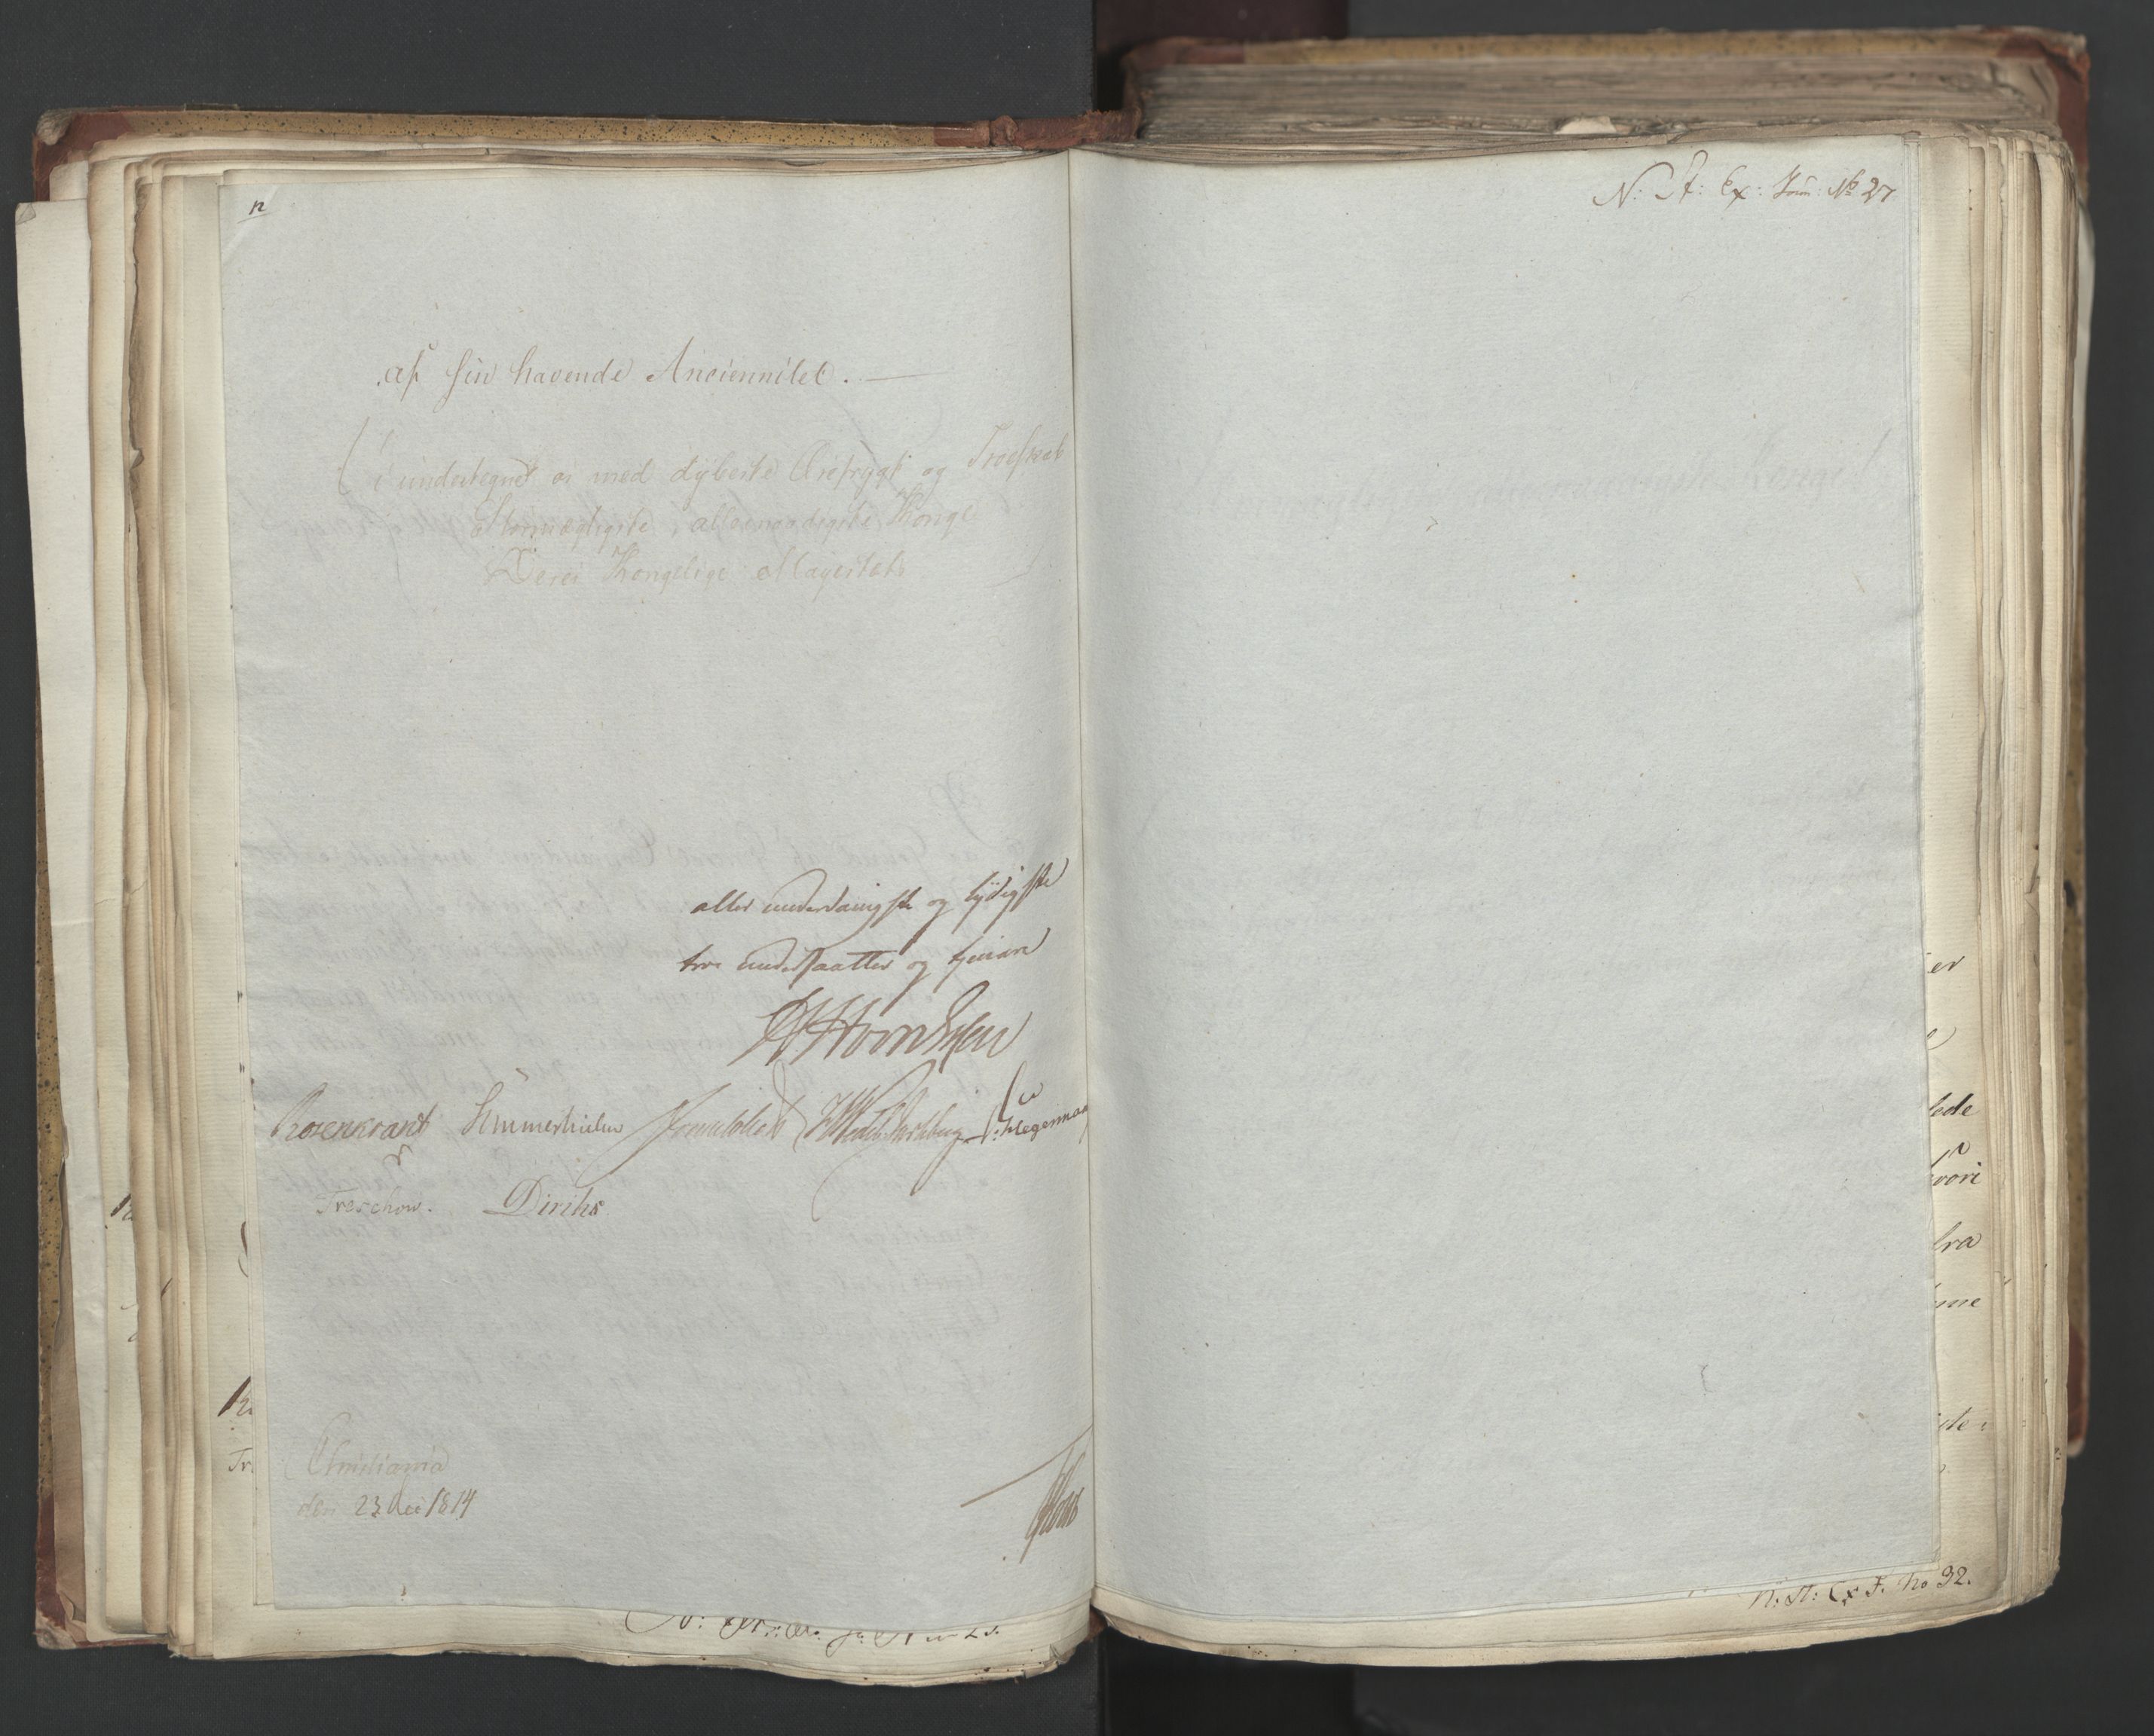 12
af sin havende Anciennitet. —
Vi undertegner os med dybeste Ærefrygt og Troeskab
Stormægtigste, allernaadigste Konge
Deres Kongelige Majestæts
aller underdanigste og lydigste
troe undersaatter og tjenere
Rosenkrantz Sommerhielm WedelJarlsberg Hegermann
Treschow. Diriks
Christiania
den 23 Dec 1814
N: St: Ex: Jour: No 27
er
lede
vori
fra
N: St: Ex J. No 32.